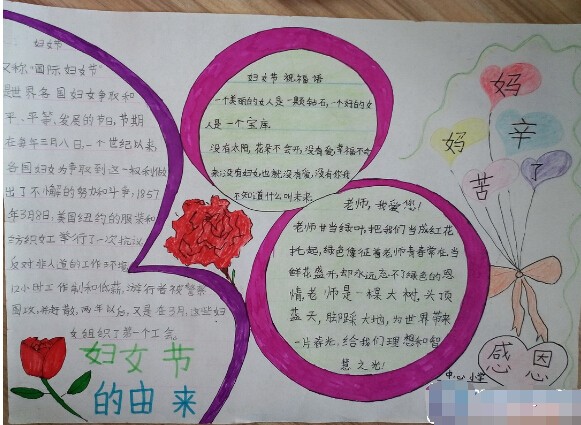 妇女节
又称"国际妇女节"
是世界各国妇女争取和
平、平等、发展的节日,节期
在每年三月八日,一个世纪以来
各国妇女为争取到这一权利做
出了不懈的努力和斗争,1857
年3月8日,美国纽约的服装和
纺织女工举行了一次抗议
反对非人道的工作环境
12小时工作制和低薪。游行者被警察
围攻,并赶散,两年以后,又是在3月,这些妇
女组织了第一个工会。
妇女节
的由来
妇女节祝福语
一个美丽的女人是一颗钻石,一个好的女
人是一个宝库。
没有太阳,花果不会开,没有爱,幸福不会
来;没有妇女,也就没有爱,没有你我
不知道什么叫未来。
老师,我爱您!
老师甘当绿叶,把我们当成红花
托起,绿色像征着老师青春常在,当
鲜花盛开,却永远忘不了绿色的恩
情,老师是一棵大树,头顶
蓝天,脚踩大地,为世界带来
一片春光,给我们理想和智
慧之光!
妈
妈
辛
苦
了
感恩
中心小学